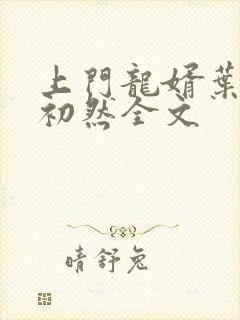 上門龍婿葉
初然全文
晴舒兔